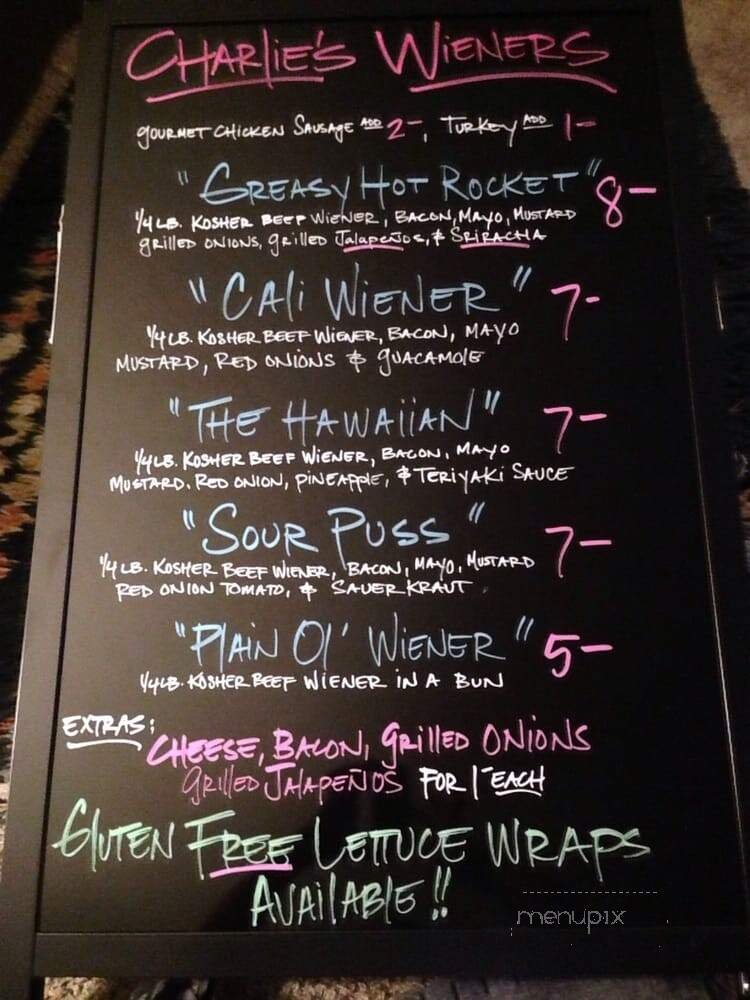 CHARLIE'S WIENERS
GOURMET CHICKEN SAUSAGE ADD 2-, TURKEY ADD 1-
"GREASY HOT ROCKET" 8-
1/4 LB. KOSHER BEEF WIENER, BACON, MAYO, MUSTARD
GRILLED ONIONS, GRILLED JALAPEÑOS, & SRIRACHA
"CALI WIENER" 7-
1/4 LB. KOSHER BEEF WIENER, BACON, MAYO
MUSTARD, RED ONIONS & GUACAMOLE
"THE HAWAIIAN" 7-
1/4 LB. KOSHER BEEF WIENER, BACON, MAYO
MUSTARD, RED ONION, PINEAPPLE, & TERIYAKI SAUCE
"SOUR PUSS" 7-
1/4 LB. KOSHER BEEF WIENER, BACON, MAYO, MUSTARD
RED ONION TOMATO, & SAUER KRAUT
"PLAIN OL' WIENER" 5-
1/4 LB. KOSHER BEEF WIENER IN A BUN
EXTRAS:
CHEESE, BACON, GRILLED ONIONS
GRILLED JALAPEÑOS FOR 1- EACH
GLUTEN FREE LETTUCE WRAPS
AVAILABLE!!
menupix